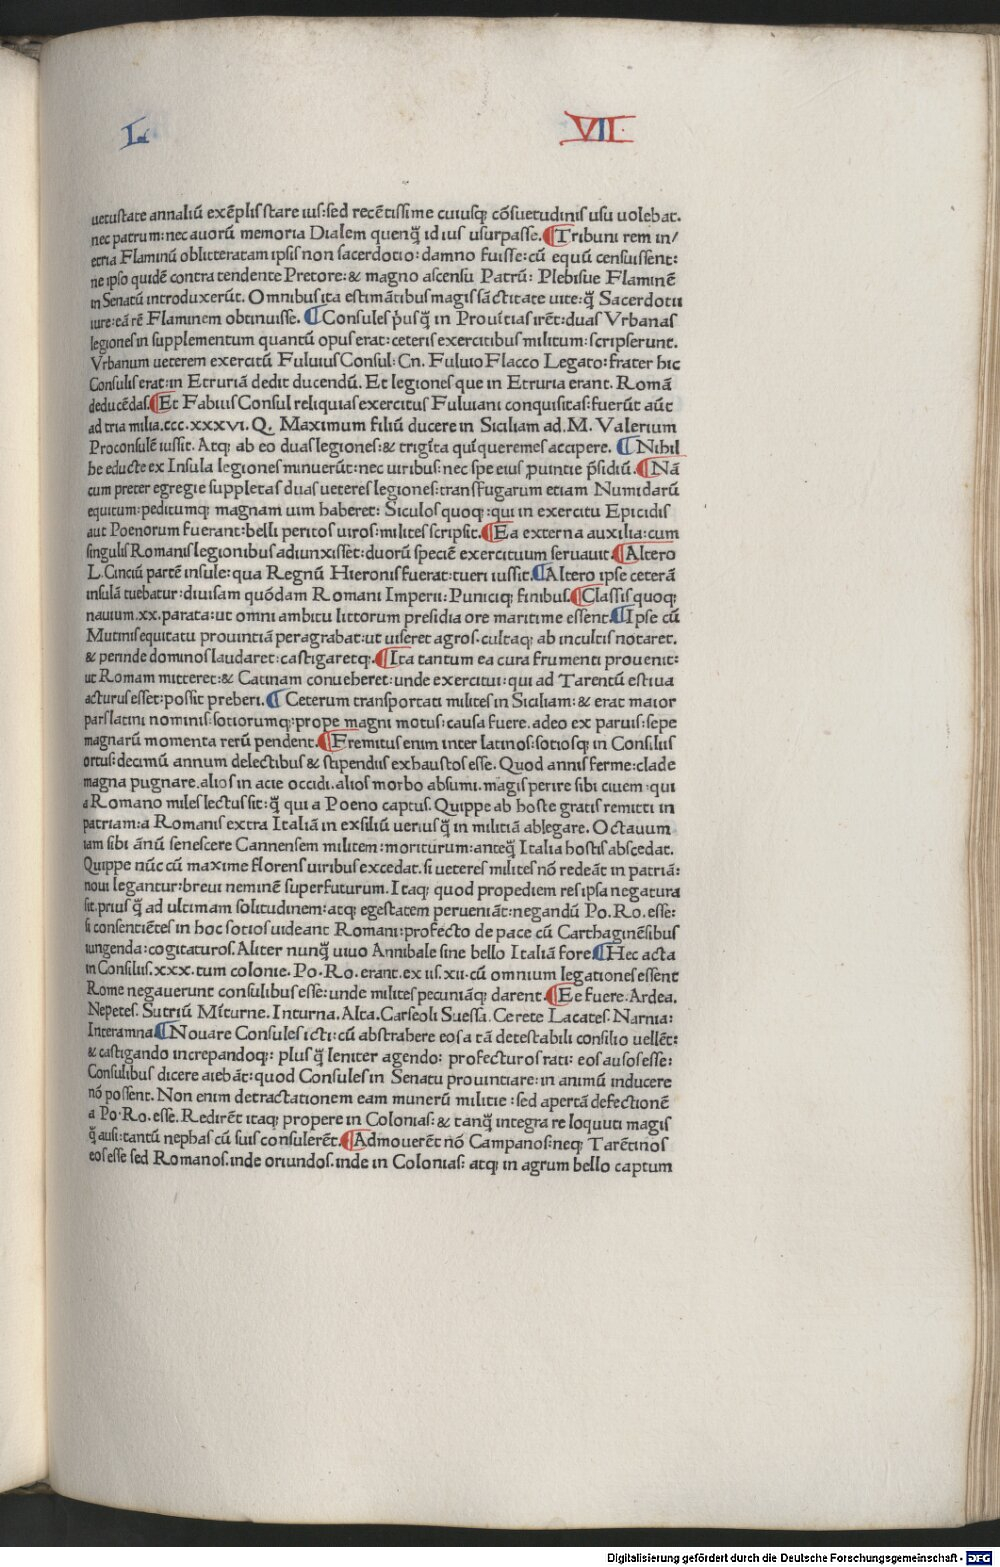 L. VII.
uetustate annaliũ exẽplis stare ius: sed recẽtissime cuiusq; cõsuetudinis usu uolebat.
nec patrum: nec auorũ memoria Dialem quenq̃ id ius usurpasse. ¶Tribuni rem in/
ertia Flaminũ oblitteratam ipsis non sacerdotio: damno fuisse: cũ equũ censuissent:
ne ipso quidẽ contra tendente Pretore: & magno ascensu Patrũ: Plebisue Flaminẽ
in Senatũ introduxerũt. Omnibus ita estimãtibus magis sãctitate uite: q̃ Sacerdotii
iure: eã rẽ Flaminem obtinuisse. ¶Consules p̓usq̃ in Prouĩtias irẽt: duas Vrbanas
legiones in supplementum quantũ opus erat: ceteris exercitibus militum: scripserunt.
Vrbanum ueterem exercitũ Fuluius Consul: Cn. Fuluio Flacco Legato: frater hic
Consulis erat: in Etruriã dedit ducendũ. Et legiones que in Etruria erant. Romã
deducẽdas. ¶Et Fabius Consul reliquias exercitus Fuluiani conquisitas: fuerũt aũt
ad tria milia.ccc.xxxvi. Q. Maximum filiũ ducere in Siciliam ad. M. Valerium
Proconsulẽ iussit. Atq; ab eo duas legiones: & trigĩta quĩqueremes accipere. ¶Nihil
he educte ex Insula legiones minuerũt: nec uiribus: nec spe eius ꝓuintie p̃sidiũ. ¶Nã
cum preter egregie suppletas duas ueteres legiones: transfugarum etiam Numidarũ
equitum: peditumq; magnam uim haberet: Siculos quoq;: qui in exercitu Epicidis
aut Poenorum fuerant: belli peritos uiros: milites scripsit. ¶Ea externa auxilia: cum
singulis Romanis legionibus adiunxisset: duorũ speciẽ exercituum seruauit. ¶Altero
L. Cinciũ partẽ insule: qua Regnũ Hieronis fuerat: tueri iussit. ¶Altero ipse ceterã
insulã tuebatur: diuisam quõdam Romani Imperii: Puniciq; finibus. ¶Classis quoq;
nauium.xx.parata: ut omni ambitu littorum presidia ore maritime essent. ¶Ipse cũ
Mutinis equitatu prouintiã peragrabat: ut uiseret agros. cultaq; ab incultis notaret.
& perinde dominos laudaret: castigaretq;. ¶Ita tantum ea cura frumenti prouenit:
ut Romam mitteret: & Catinam conueheret: unde exercitui: qui ad Tarentũ estiua
acturus esset: possit preberi. ¶Ceterum transportati milites in Siciliam: & erat maior
pars latini nominis: sotiorumq;: prope magni motus: causa fuere. adeo ex paruis: sepe
magnarũ momenta rerũ pendent. ¶Fremitus enim inter latinos: sotiosq; in Consiliis
ortus: decimũ annum delectibus & stipendiis exhaustos esse. Quod annis ferme: clade
magna pugnare. alios in acie occidi. alios morbo absumi. magis perire sibi ciuem: qui
a Romano miles lectus sit: q̃ qui a Poeno captus. Quippe ab hoste gratis remitti in
patriam: a Romanis extra Italiã in exsiliũ uerius q̃ in militiã ablegare. Octauum
iam sibi ãnũ senescere Cannensem militem: moriturum: anteq̃ Italia hostis abscedat.
Quippe nũc cũ maxime florens uiribus excedat. si ueteres milites nõ redeãt in patriã:
noui legantur: breui neminẽ superfuturum. Itaq; quod propediem res ipsa negatura
sit. prius q̃ ad ultimam solitudinem: atq; egestatem perueniãt: negandũ Po. Ro. esse:
si consentiẽtes in hoc sotios uideant Romani: profecto de pace cũ Carthaginẽsibus
iungenda: cogitaturos. Aliter nunq̃ uiuo Annibale sine bello Italiã fore. ¶Hec acta
in Consiliis.xxx.tum colonie. Po. Ro. erant. ex iis. xii. cũ omnium legationes essent
Rome negauerunt consulibus esse: unde milites pecuniãq; darent. ¶Ee fuere. Ardea.
Nepetes. Sutriũ Mĩturne. Inturna. Alta. Carseoli Suessa. Cerete Lacates. Narnia:
Interamna. ¶Nouare Consules icti: cũ abstrahere eos a tã detestabili consilio uellẽt:
& castigando increpandoq;: plus q̃ leniter agendo: profecturos rati: eos ausos esse:
Consulibus dicere aiebãt: quod Consules in Senatu prouintiare: in animũ inducere
nõ possent. Non enim detractationem eam munerũ militie: sed apertã defectionẽ
a Po. Ro. esse. Redirẽt itaq; propere in Colonias: & tanq̃ integra re loquuti magis
q̃ ausi: tantũ nephas cũ suis consulerẽt. ¶Admouerẽt nõ Campanos: neq; Tarẽtinos
eos esse sed Romanos. inde oriundos. inde in Colonias: atq; in agrum bello captum
Digitalisierung gefördert durch die Deutsche Forschungsgemeinschaft - DFG